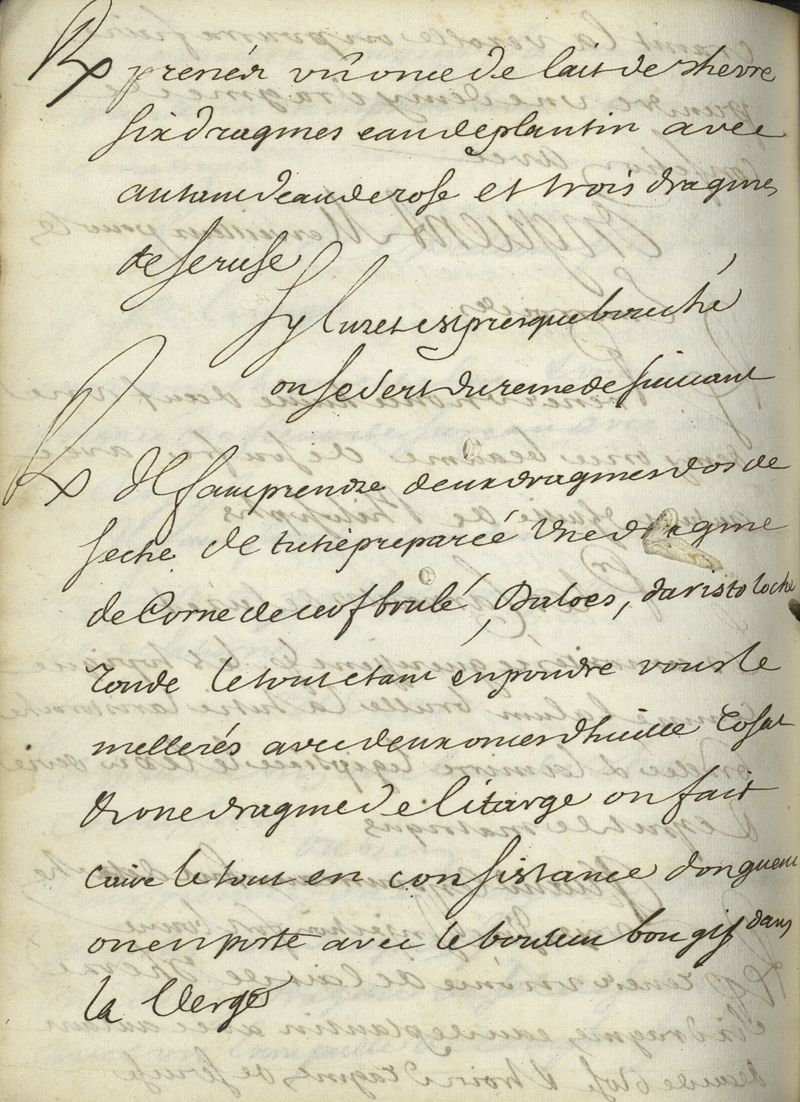 Rx prenéz vn once de lait de shevre
six dragmes eau de plantin avec
autant deau de rose et trois dragmes
de seruse
sy luret est presque bouché
on se sert du remede suivant
Rx Il faut prendre deux dragmes dos de
seche de tutie preparée Une dragme
de Corne de cerf brulé, Daloes, daristoloche
ronde le tout etant en poudre vous le
mellerés avec deux onces dhuille rosat
& one dragme de litarge on fait
cuire le tout en consistance donguent
on en porte avec le bouttu bougis dans
la Verge